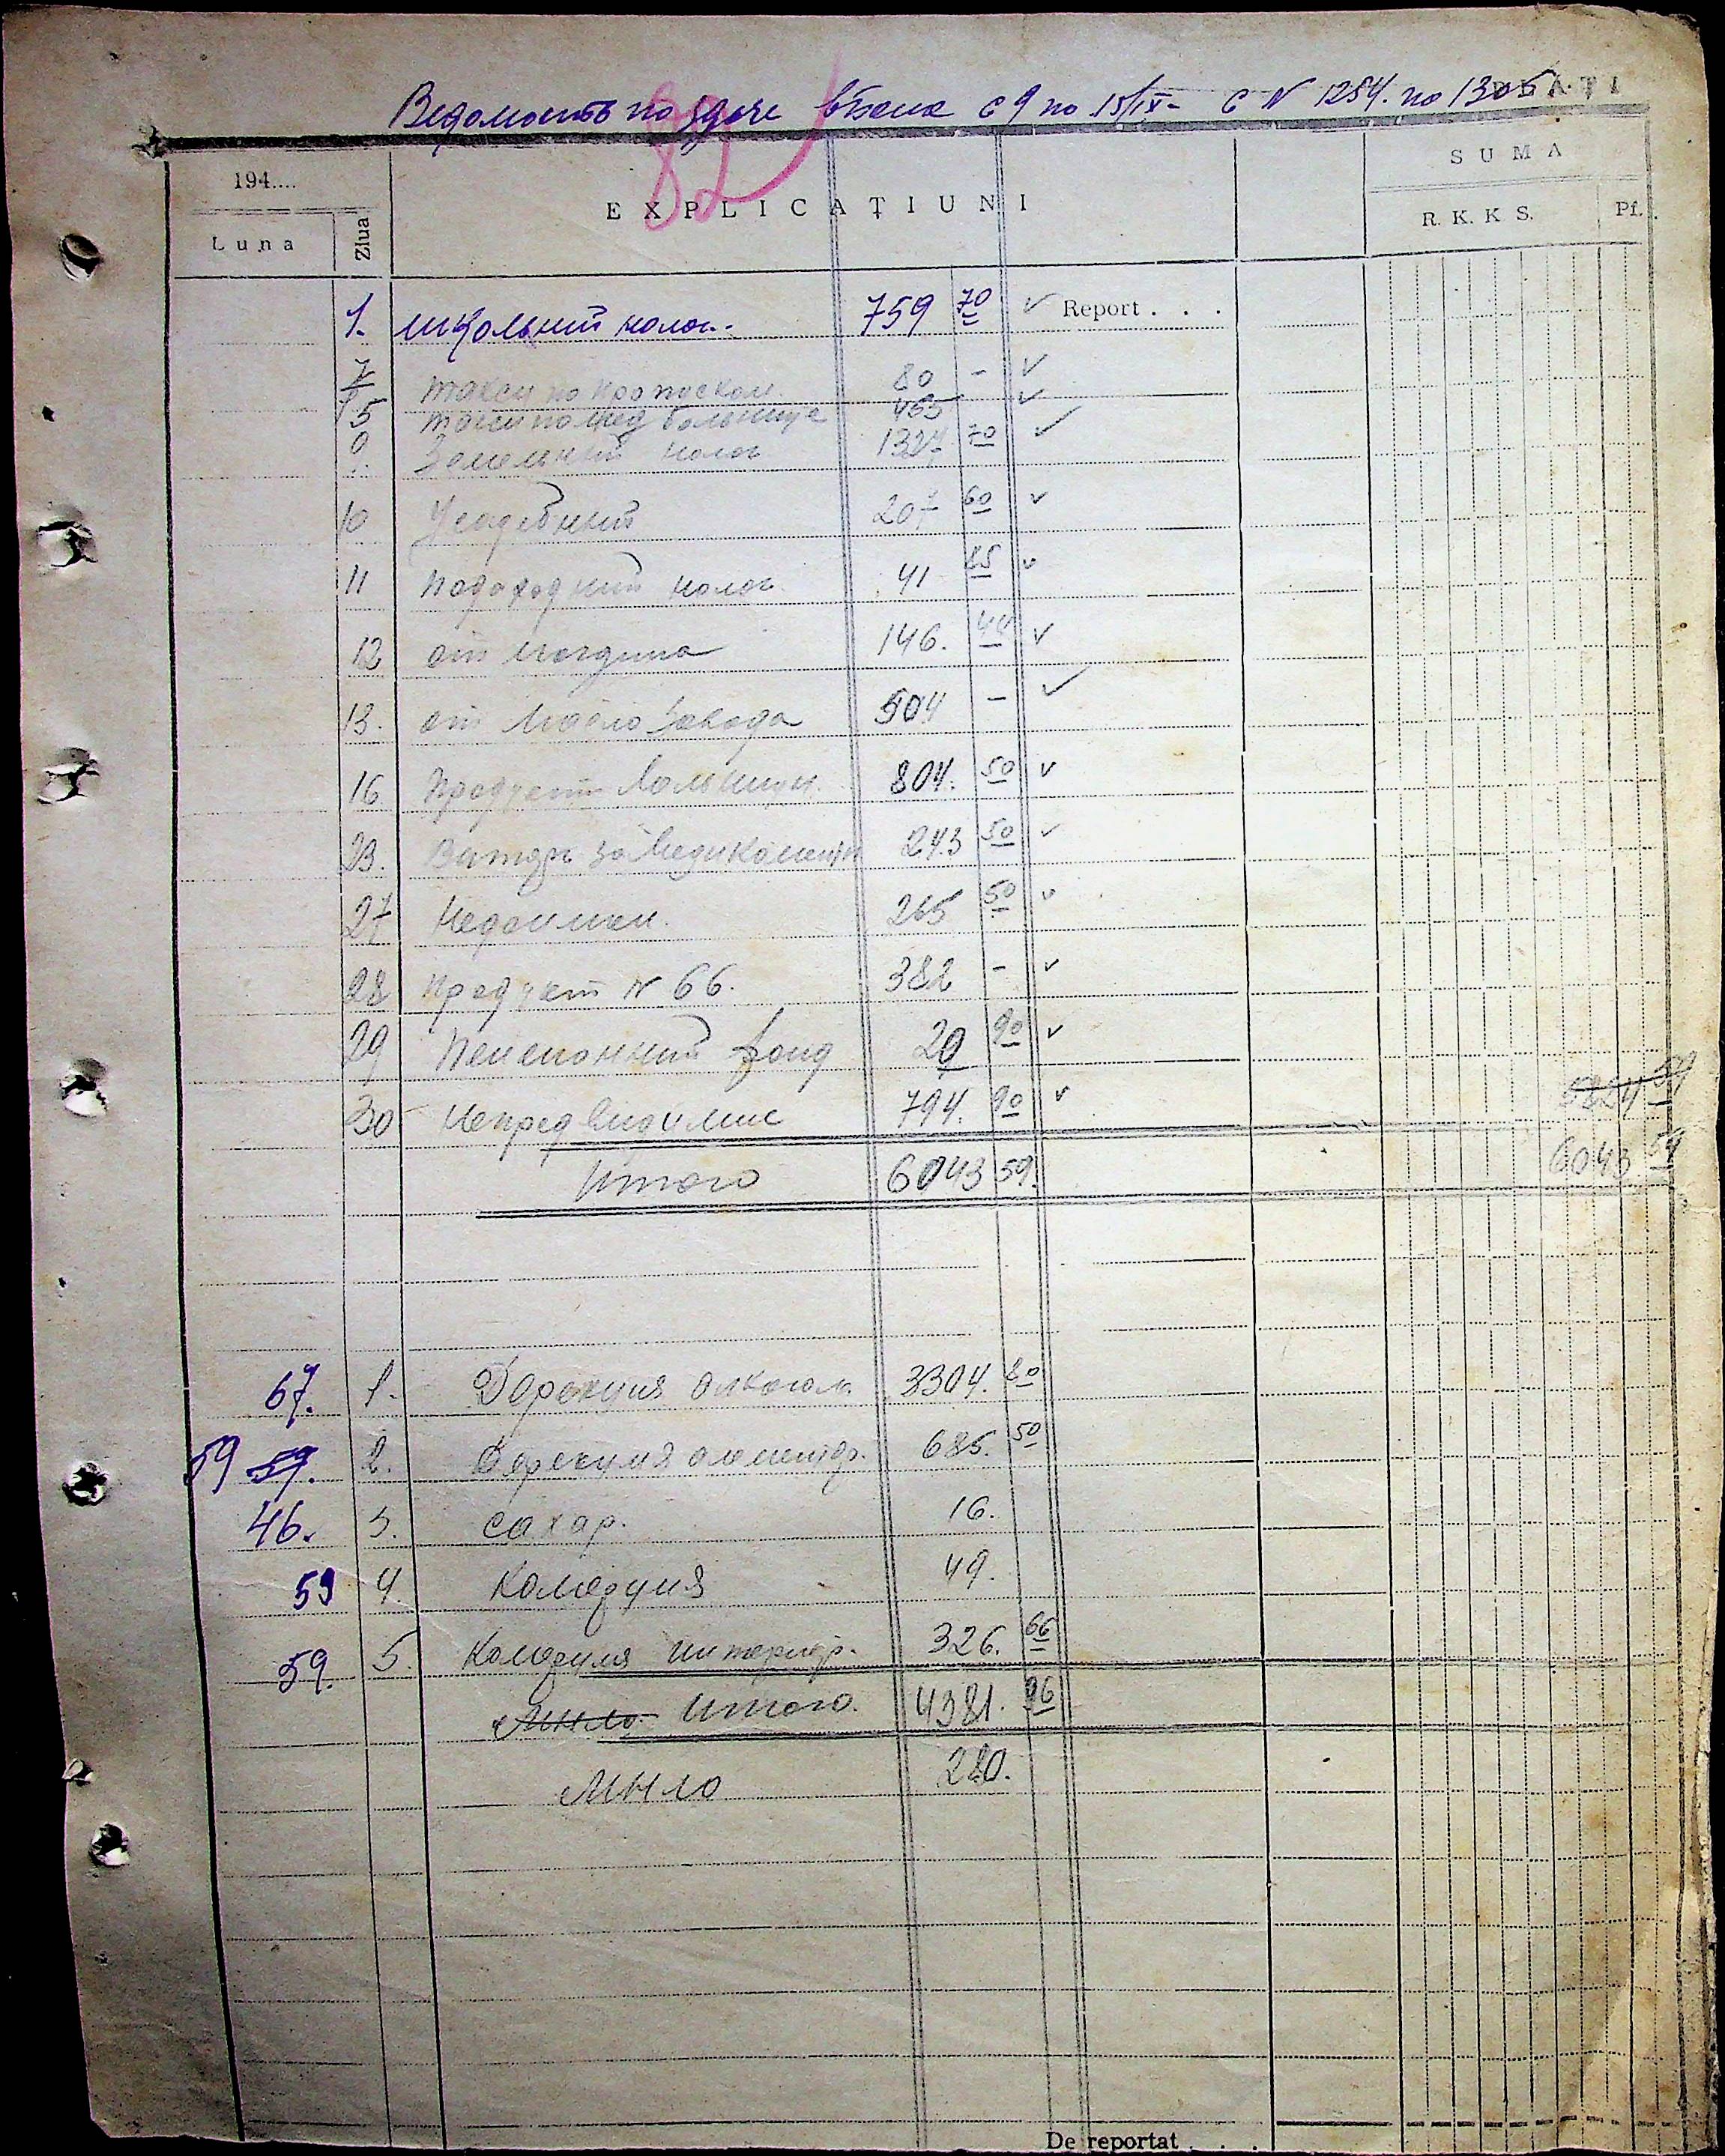 Ведомость по здаче в банк с 9 по 15/IX- с N 1284. по 1305
82
194....
Luna
Ziua
EXPLICAŢIUNI
SUMA
R. K. K. S.
Pf.
1. школьний налог. 759 70 ✓ Report . . .
такси по пропоскам 80 - ✓
5 такси по мед больнице 465 ✓
9. Земельний налог 1327 70 ✓
10 Усадебний 207 60 ✓
11 Подоходний налог 41 85 ✓
12 от 146. 44 ✓
13. от Масло завода 504 - ✓
16 Продукт больниц. 804. 50 ✓
23. за Медикаменти 243 50 ✓
27 Недоимки. 265 50 ✓
28 Продукт N 66. 382 - ✓
29 Пенсионний фонд 20 90 ✓
30 Непредвидимис 794. 90 ✓ 5824 59
Итого 6043 59. 6043 59
67. 1. Дирекция алкогол 3304. 80
59 59. 2. Дирекция алементар. 685. 50
46. 3. сахар. 16.
59 4. Камерция 49.
59. 5. Камерция интернар. 326. 66
Мыло Итого. 4381. 96
Мыло 280.
De reportat . . .